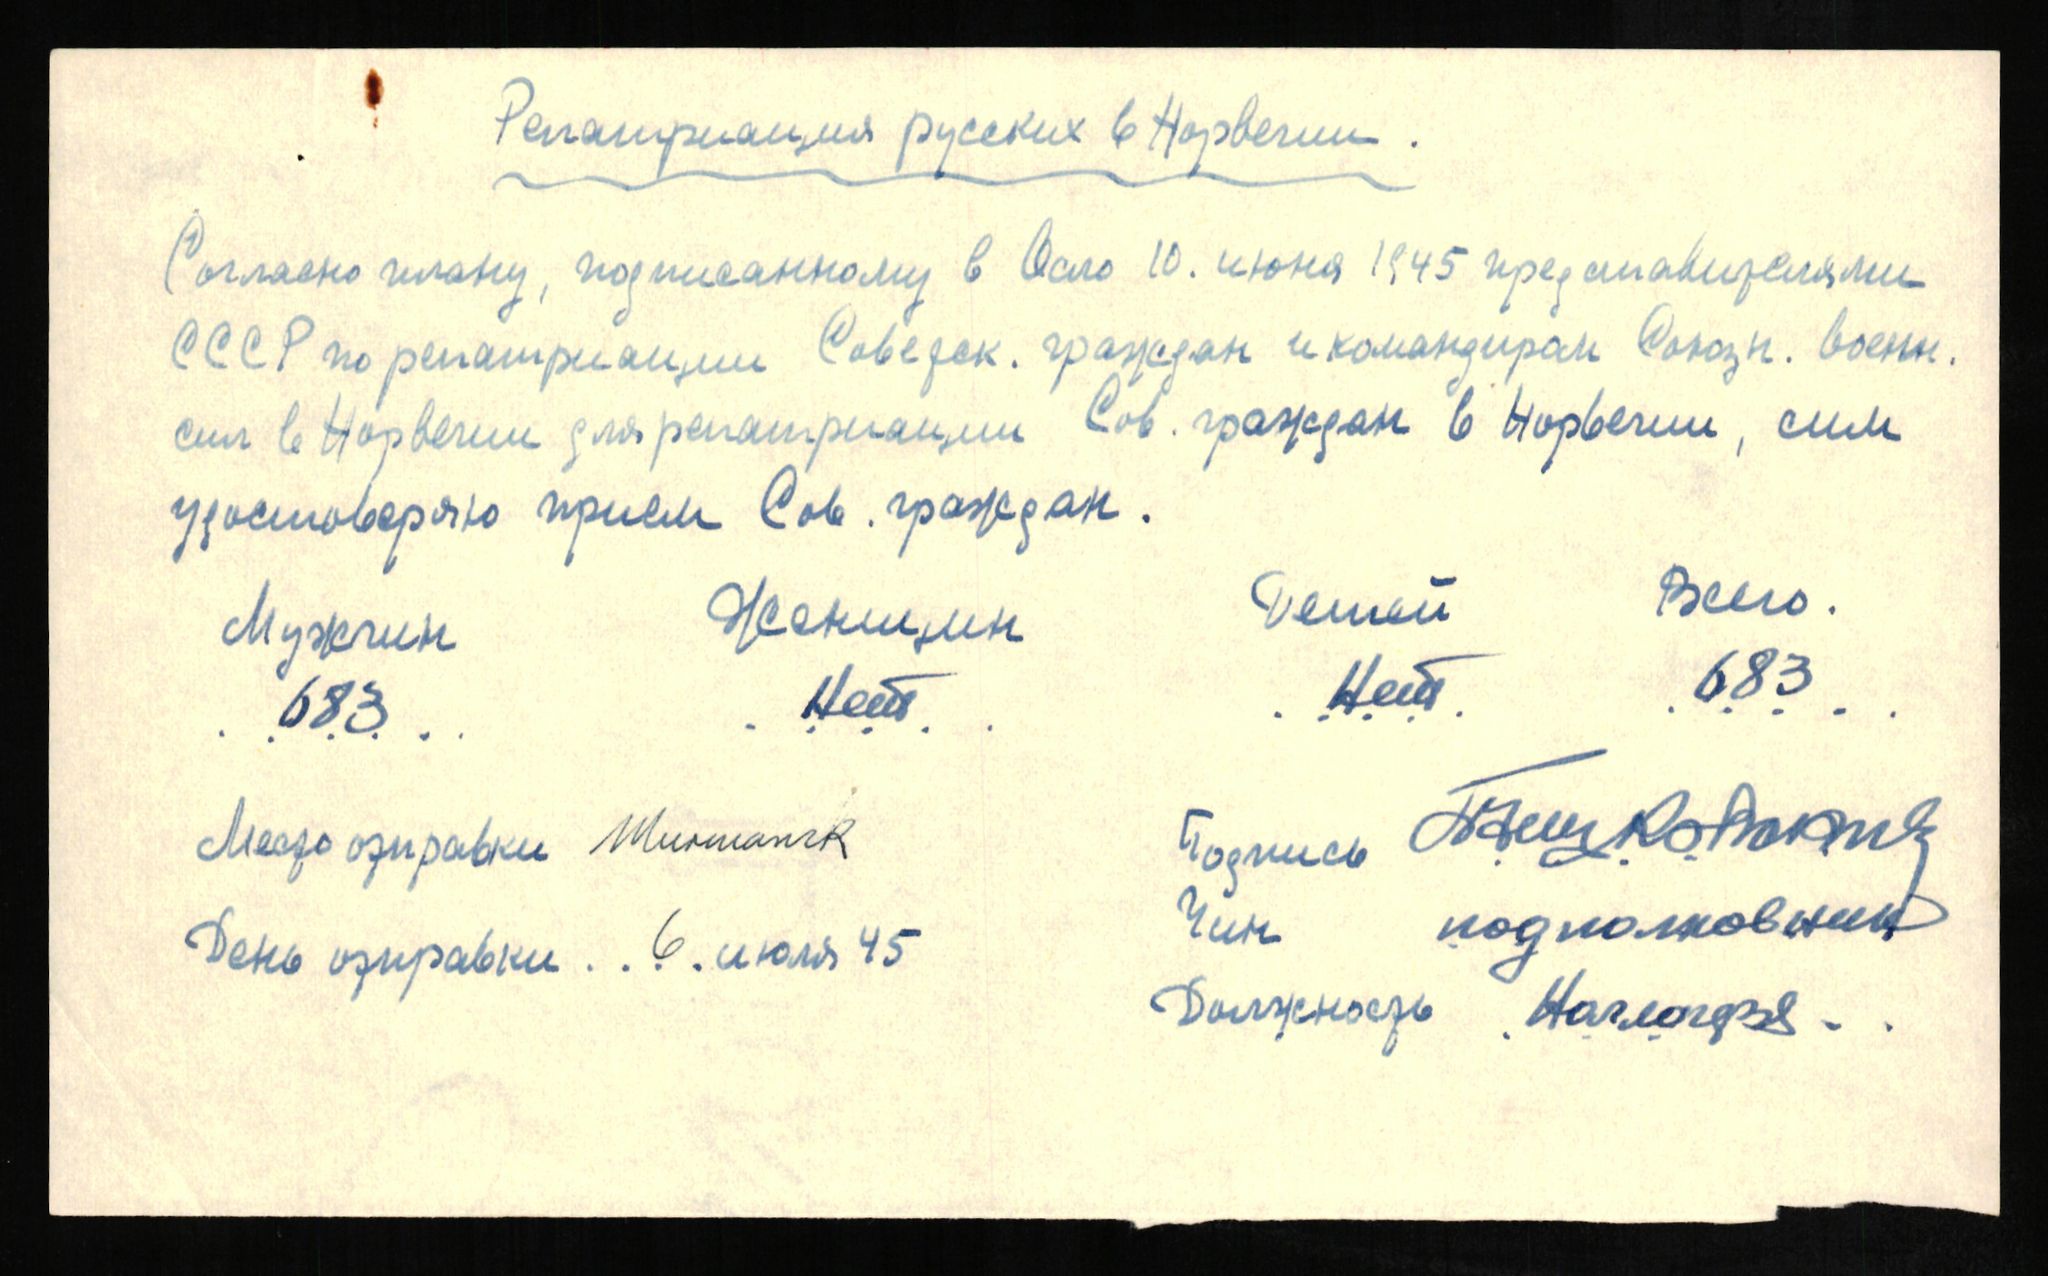 Репатриация русских в Норвегии.
Согласно плану, подписанному в Осло 10. июня 1945 представителями
СССР по репатриации Советск. граждан и командирам Союзн. военн.
сил в Норвегии для репатриации Сов. граждан в Норвегии, сим
удостоверяю прием Сов. граждан.
Мужчин Женщин Детей Всего.
683 Нет Нет 683
Место отправки
Подпись
Чин подполковник
День отправки . . 6 . июля 45
Должность